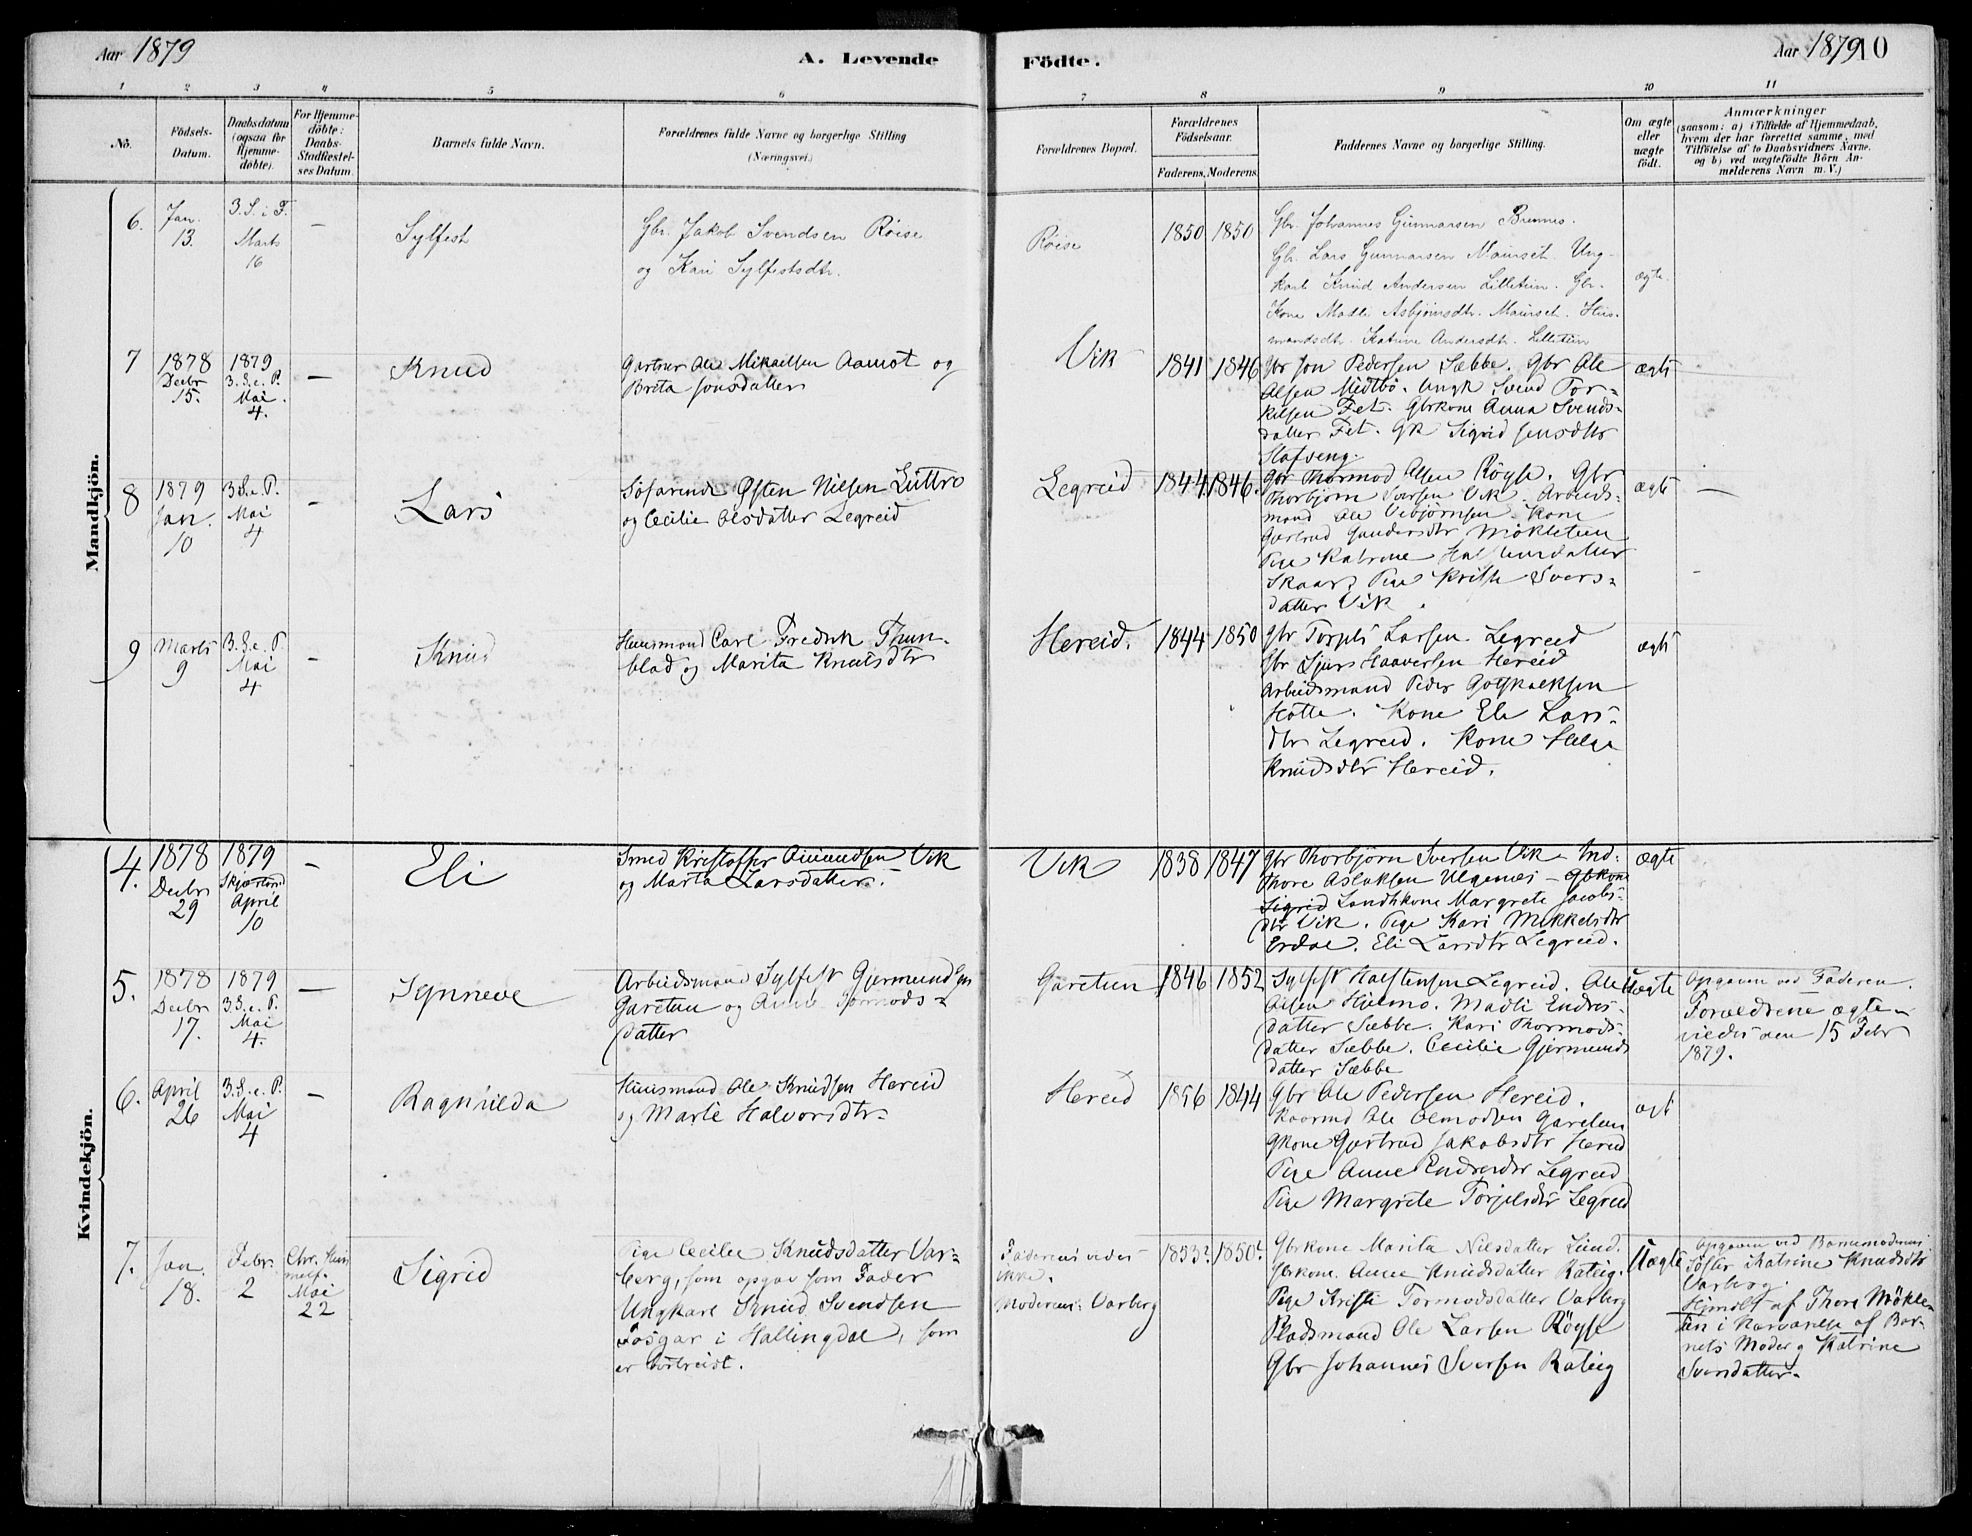 Aar 1879
A. Levende
Födte.
Aar 1879
10
1 2 3 4 5 6 7 8 9 10 11
No.
Födsels-
Datum.
Daabsdatum
(ogsaa for
Hjemme-
döbte).
For Hjemme-
döbte:
Daabs-
Stadfæstel-
ses Datum.
Barnets fulde Navn.
Forældrenes fulde Navne og borgerlige Stilling
(Næringsvei.)
Forældrenes Bopæl.
Forældrenes
Födselsaar.
Faderens. Moderens.
Faddernes Navne og borgerlige Stilling.
Om ægte
eller
uægte
födt.
Anmærkninger
(saasom: a) i Tilfælde af Hjemmedaab,
hvem der har forrettet samme, med
Tilföielse af to Daabsvidners Navne.
og b) ved uægtefödte Börn An-
melderens Navn m. V.)
Mandkjön.
6.
Jan.
13.
3. S. i F.
Marts
16
—
Sylfest
Gbr. Jakob Svendsen Röise
og Kari Sylfestsdtr.
Röise
1850 1850
Gbr. Johannes Gunnarsen Brennes.
Gbr. Lars Gunnarsen Maurset. Ung-
karl Knud Andersen Lilletun. Gbr.
Kone Madli Asbjørnsdtr. Maurset. Hus-
mandsdtr. Katrine Andersdtr. Lilletun
ægte.
7
1878
Decbr
15.
1879
3. S. e. P.
Mai.
4.
—
Knud
Gartner Ole Mikaelsen Aamot og
Brita Jonsdatter
Vik
1841 1846
Gbr Jon Pedersen Sæbbe. Gbr Ole
Olsen Midtbö. Ungk Svend Tor-
kilsen Fet. Gbrkone Anna Svends-
datter Fet. Gk Sigrid Jensdtr
ægte
8
1879
Jan.
10
3 S. e. P.
Mai
4
—
Lars
Söfarende Østen Nilsen Luttro
og Cecilie Olsdatter Legreid
Legreid
1844 1846.
Gbr Thormod Olsen Röyse. Gbr
Thorbjörn Iversen Vik. Arbeids-
mand Ole Vebjörnsen. Kone
Gjertrud Gundersdtr Mökletun
Pige Katrine
Skaar. Pige Kristi Ivers-
datter Vik.
ægte
—
9
Marts
9
3. S. e. P.
Mai
4
—
Knud
Huusmand Carl Fredrik Thun-
blad og Marita Knutsdtr
Hereid.
1844 1850
Gbr Torgils Larsen Legreid
Gbr Sjurs Haaversen Hereid
Arbeidsmand Peder Gotskalksen
Hotte. Kone Eli Lars-
dtr Legreid. Kone Helga
Knudsdtr Hereid.
ægte
Kvindekjön.
4.
1878
Decbr
29
1879
Skjærtorsd
April
10
—
Eli
Smed Kristoffer Amundsen Vik
og Marta Larsdatter.
Vik
1838 1847
Gbr Thorbjörn Iversen Vik – Ind-
Thore Aslaksen Ulgenes – Gbkone
Sigrid Landhkone Margrete Jacobs-
dtr Vik. Pige Kari Mikkelsdtr
Erdal. Eli Larsdtr Legreid.
ægte
5.
1878
Decbr
17.
1879
3. S. e. P.
Mai
4.
—
Synneve
Arbeidsmand Sylfest Gjermundsen
Garetun og Anne Tormods-
datter
Garetun
1846 1852
Sylfest Halstensen Legreid. Ole
Olsen Hjelmo. Madli Endres-
datter Sæbbe. Kari Thormods-
datter Sæbbe. Cecilie Gjermunds
datter Sæbbe
Uægte
Opgaven ved Faderen.
Forældrene ægte-
viedes den 15 Febr
1879.
6.
April
26
3. S. e. P.
Mai
4
—
Ragnhilda
Huusmand Ole Knudsen Hereid
og Marte Halvorsdtr
Hereid
1856 1844
Gbr Ole Pedersen Hereid.
Kaarmd Ole Olmodsen Garetun
Gkone Gjertrud Jakobsdtr Hereid
Pige Anne Endresdtr Legreid
Pige Margrete Torgilsdtr Legreid
ægt
7.
Jan.
18.
Febr.
2
Chr. Him
melf.
Mai
22
Sigrid
Pige Cecilie Knudsdatter Var-
berg, som opgav som Fader
Ungkarl Knud Svendsen
Fosgar i Hallingdal, som
er bortreist.
Faderens vides
ikke.
Moderens: Varberg
1853? 1850?
Gbrkone Marita Nilsdatter Lund.
Gbrkone Anne Knudsdatter Rateig.
Pige Kristi Tormodsdatter Varberg
Pladsmand Ole Larsen Röyse
Gbr Johannes Iversen Rateig
Uægte
Opgaven ved Barnemoderens
Söster Katrine Knudsdtr
Varberg.
Hjmdbt af Thore Mökle-
tun i Nærværelse af Bar-
nets Moder og Katrine
Iversdatter.